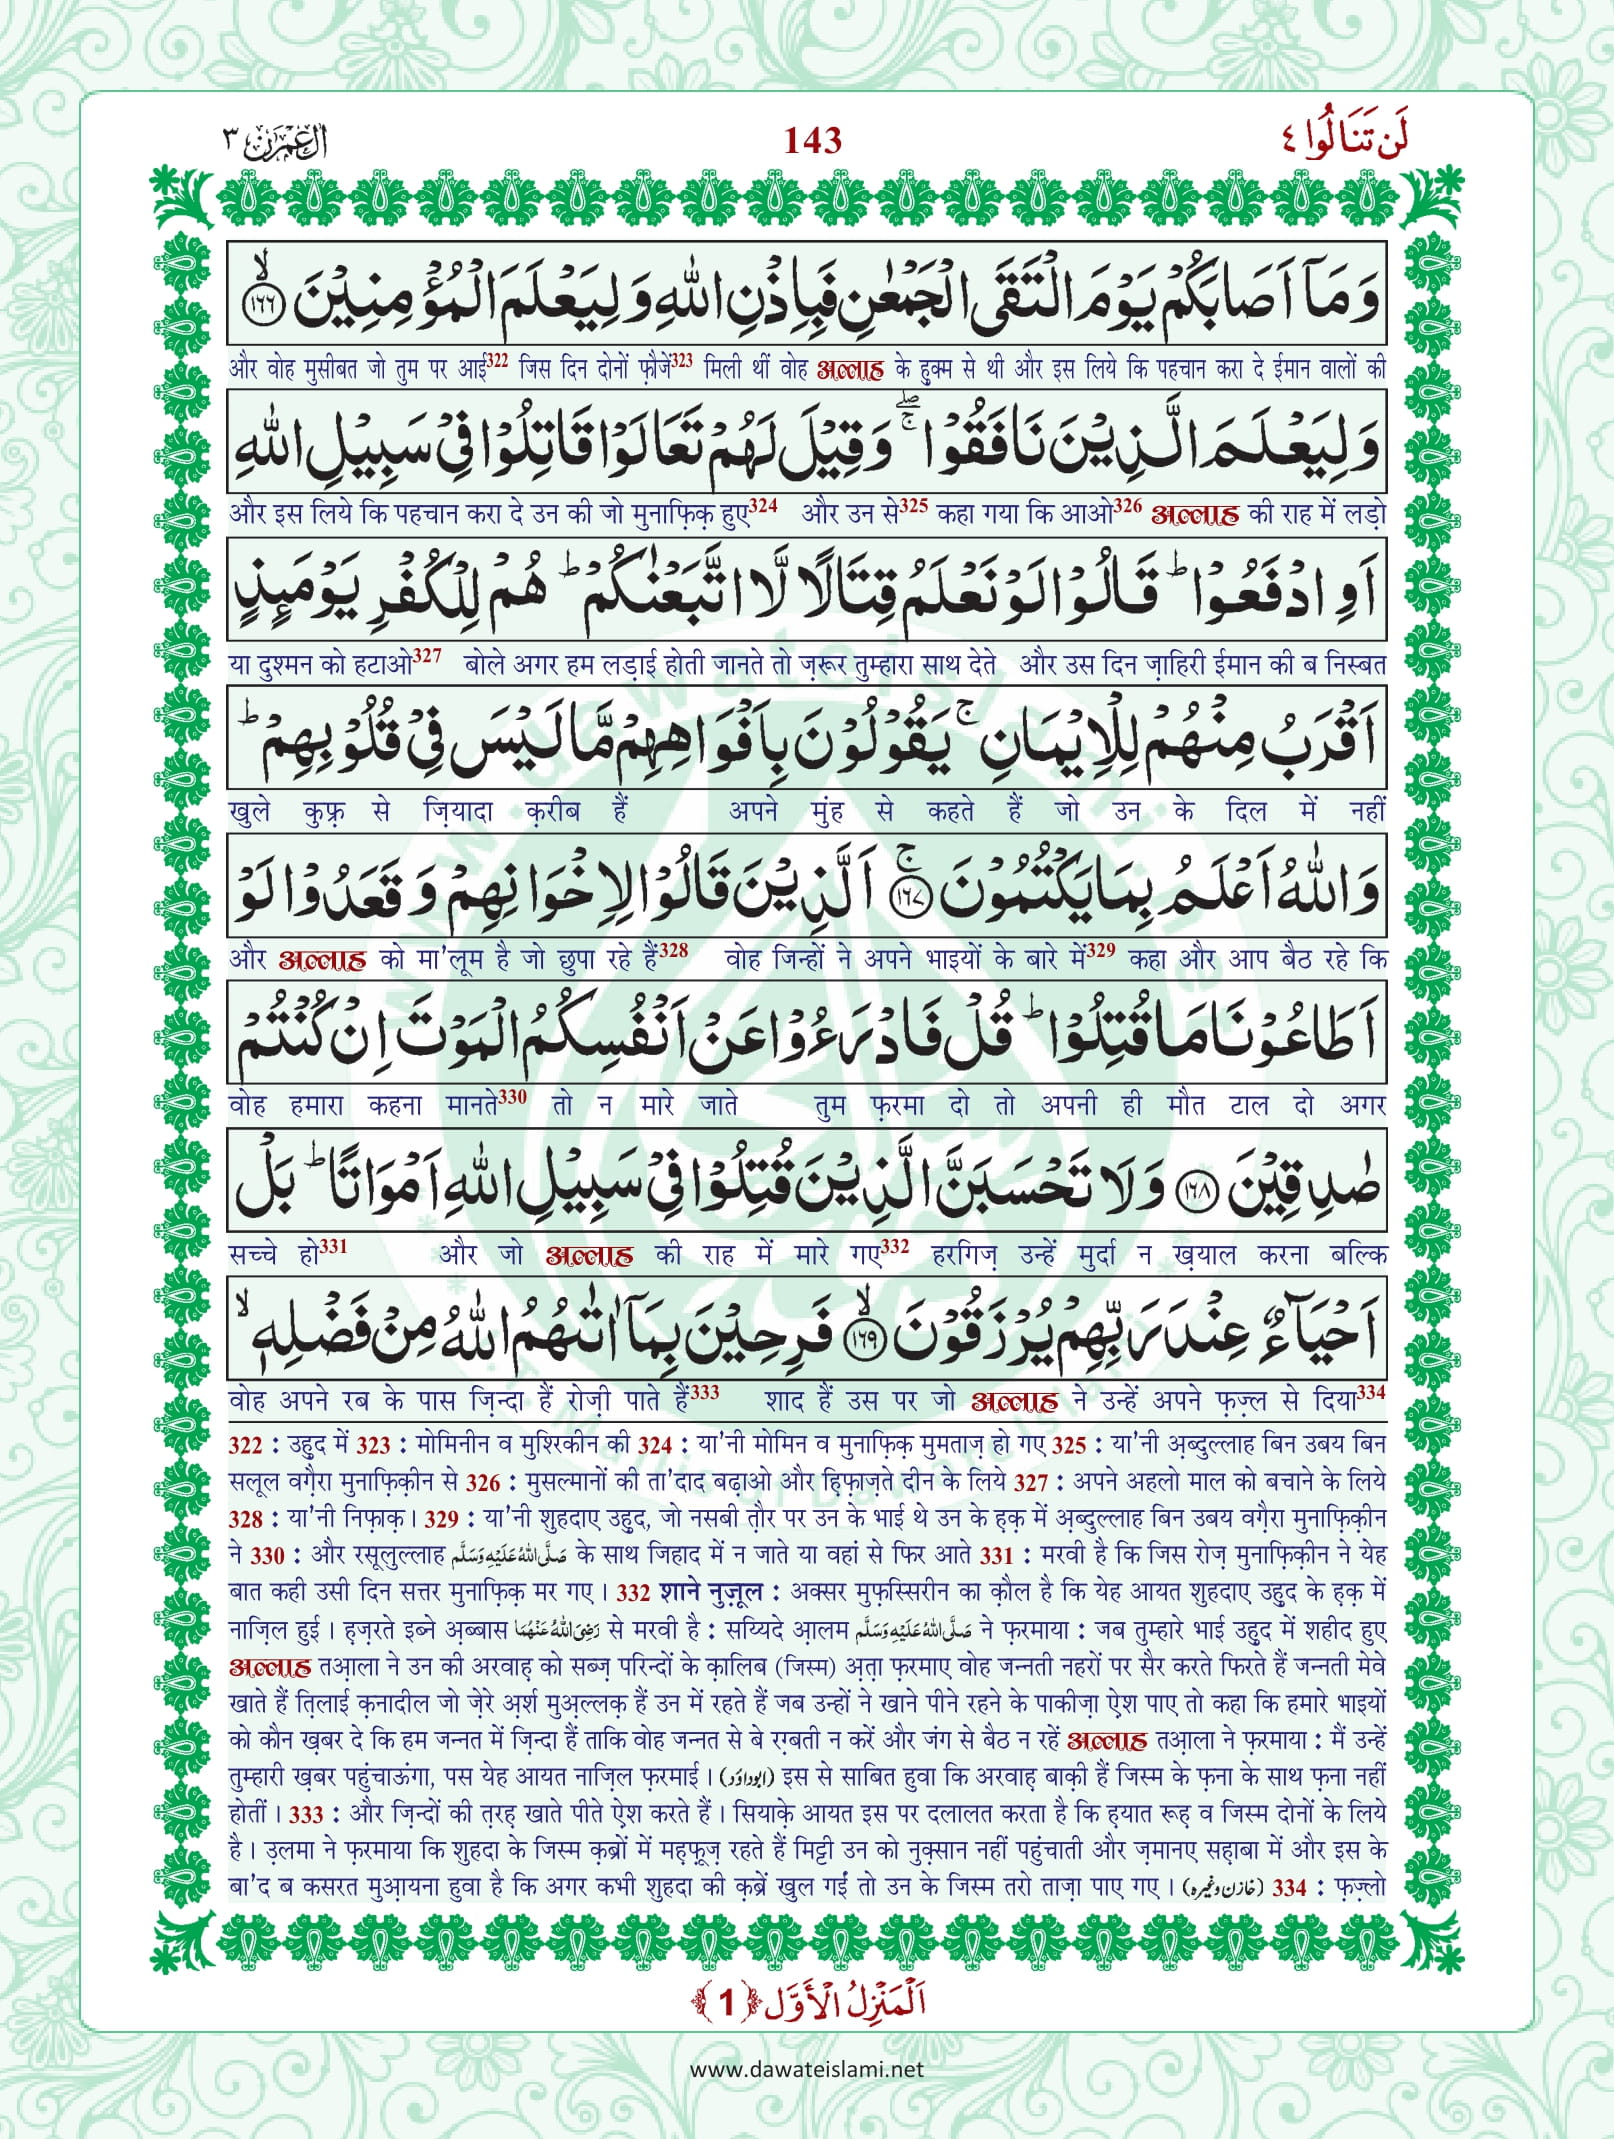 اٰل عمرٰن ٣
143
لَنْ تَنَالُوا ٤
وَمَاۤ اَصَابَكُمْ یَوْمَ الْتَقَی الْجَمْعٰنِ فَبِاِذْنِ اللّٰهِ وَلِیَعْلَمَ الْمُؤْمِنِیْنَۙ﴿۱۶۶﴾
और वोह मुसीबत जो तुम पर आई322 जिस दिन दोनों फ़ौजें323 मिली थीं वोह अल्लाह के हुक्म से थी और इस लिये कि पहचान करा दे ईमान वालों की
وَلِیَعْلَمَ الَّذِیْنَ نَافَقُوْا ۚۖ وَقِیْلَ لَهُمْ تَعَالَوْا قَاتِلُوْا فِیْ سَبِیْلِ اللّٰهِ
और इस लिये कि पहचान करा दे उन की जो मुनाफ़िक़ हुए324 और उन से325 कहा गया कि आओ326 अल्लाह की राह में लड़ो
اَوِ ادْفَعُوْا ؕ قَالُوْا لَوْ نَعْلَمُ قِتَالًا لَّا اتَّبَعْنٰكُمْ ؕ هُمْ لِلْكُفْرِ یَوْمَىِٕذٍ
या दुश्मन को हटाओ327 बोले अगर हम लड़ाई होती जानते तो ज़रूर तुम्हारा साथ देते और उस दिन ज़ाहिरी ईमान की ब निस्बत
اَقْرَبُ مِنْهُمْ لِلْاِیْمَانِ ۚ یَقُوْلُوْنَ بِاَفْوَاهِهِمْ مَّا لَیْسَ فِیْ قُلُوْبِهِمْ ؕ
खुले कुफ़्र से ज़ियादा क़रीब हैं अपने मुंह से कहते हैं जो उन के दिल में नहीं
وَاللّٰهُ اَعْلَمُ بِمَا یَكْتُمُوْنَۚ﴿۱۶۷﴾ اَلَّذِیْنَ قَالُوْا لِاِخْوَانِهِمْ وَقَعَدُوْا لَوْ
और अल्लाह को मा'लूम है जो छुपा रहे हैं328 वोह जिन्हों ने अपने भाइयों के बारे में329 कहा और आप बैठ रहे कि
اَطَاعُوْنَا مَا قُتِلُوْا ؕ قُلْ فَادْرَءُوْا عَنْ اَنْفُسِكُمُ الْمَوْتَ اِنْ كُنْتُمْ
वोह हमारा कहना मानते330 तो न मारे जाते तुम फ़रमा दो तो अपनी ही मौत टाल दो अगर
صٰدِقِیْنَ﴿۱۶۸﴾ وَلَا تَحْسَبَنَّ الَّذِیْنَ قُتِلُوْا فِیْ سَبِیْلِ اللّٰهِ اَمْوَاتًا ؕ بَلْ
सच्चे हो331 और जो अल्लाह की राह में मारे गए332 हरगिज़ उन्हें मुर्दा न ख़याल करना बल्कि
اَحْیَآءٌ عِنْدَ رَبِّهِمْ یُرْزَقُوْنَۙ﴿۱۶۹﴾ فَرِحِیْنَ بِمَاۤ اٰتٰىهُمُ اللّٰهُ مِنْ فَضْلِهٖ ۙ
वोह अपने रब के पास ज़िन्दा हैं रोज़ी पाते हैं333 शाद हैं उस पर जो अल्लाह ने उन्हें अपने फ़ज़्ल से दिया334
322 : उहुद में 323 : मोमिनीन व मुश्रिकीन की 324 : या'नी मोमिन व मुनाफ़िक़ मुमताज़ हो गए 325 : या'नी अ़ब्दुल्लाह बिन उबय बिन
सलूल वग़ैरा मुनाफ़िक़ीन से 326 : मुसल्मानों की ता'दाद बढ़ाओ और हि़फ़ाज़ते दीन के लिये 327 : अपने अहलो माल को बचाने के लिये
328 : या'नी निफ़ाक़। 329 : या'नी शुहदाए उहुद, जो नसबी त़ौर पर उन के भाई थे उन के ह़क़ में अ़ब्दुल्लाह बिन उबय वग़ैरा मुनाफ़िक़ीन
ने 330 : और रसूलुल्लाह صَلَّى اللّٰهُ عَلَيْهِ وَسَلَّم के साथ जिहाद में न जाते या वहां से फिर आते 331 : मरवी है कि जिस रोज़ मुनाफ़िक़ीन ने येह
बात कही उसी दिन सत्तर मुनाफ़िक़ मर गए। 332 शाने नुज़ूल : अक्सर मुफ़स्सिरीन का क़ौल है कि येह आयत शुहदाए उहुद के ह़क़ में
नाज़िल हुई। ह़ज़रते इब्ने अ़ब्बास رَضِىَ اللّٰهُ عَنْهُمَا से मरवी है : सय्यिदे आ़लम صَلَّى اللّٰهُ عَلَيْهِ وَسَلَّم ने फ़रमाया : जब तुम्हारे भाई उहुद में शहीद हुए
अल्लाह तआ़ला ने उन की अरवाह़ को सब्ज़ परिन्दों के क़ालिब (जिस्म) अ़त़ा फ़रमाए वोह जन्नती नहरों पर सैर करते फिरते हैं जन्नती मेवे
खाते हैं त़िलाई क़नादील जो ज़ेरे अ़र्श मुअ़ल्लक़ हैं उन में रहते हैं जब उन्हों ने खाने पीने रहने के पाकीज़ा ऐ़श पाए तो कहा कि हमारे भाइयों
को कौन ख़बर दे कि हम जन्नत में ज़िन्दा हैं ताकि वोह जन्नत से बे रग़्बती न करें और जंग से बैठ न रहें अल्लाह तआ़ला ने फ़रमाया : मैं उन्हें
तुम्हारी ख़बर पहुंचाऊंगा, पस येह आयत नाज़िल फ़रमाई। (ابوداؤد) इस से साबित हुवा कि अरवाह़ बाक़ी हैं जिस्म के फ़ना के साथ फ़ना नहीं
होतीं। 333 : और ज़िन्दों की त़रह़ खाते पीते ऐ़श करते हैं। सियाक़े आयत इस पर दलालत करता है कि ह़यात रूह़ व जिस्म दोनों के लिये
है। उ़लमा ने फ़रमाया कि शुहदा के जिस्म क़ब्रों में मह़फ़ूज़ रहते हैं मिट्टी उन को नुक़्सान नहीं पहुंचाती और ज़मानए सह़ाबा में और इस के
बा'द ब कसरत मुआ़यना हुवा है कि अगर कभी शुहदा की क़ब्रें खुल गईं तो उन के जिस्म तरो ताज़ा पाए गए। (خازن وغیرہ) 334 : फ़ज़्लो
اَلْمَنْزِلُ الْاَوَّل ﴿1﴾
www.dawateislami.net